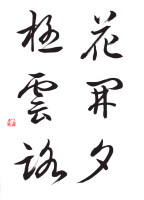 花開夕
極雲路